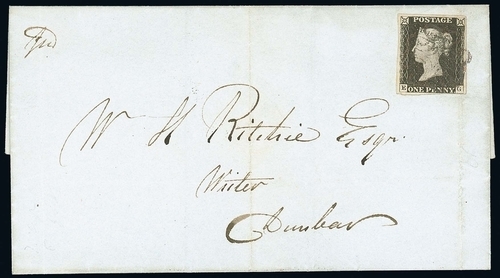 POSTAGE
E G
ONE PENNY
W H Ritchie Esqr.
Writer
Dunbar